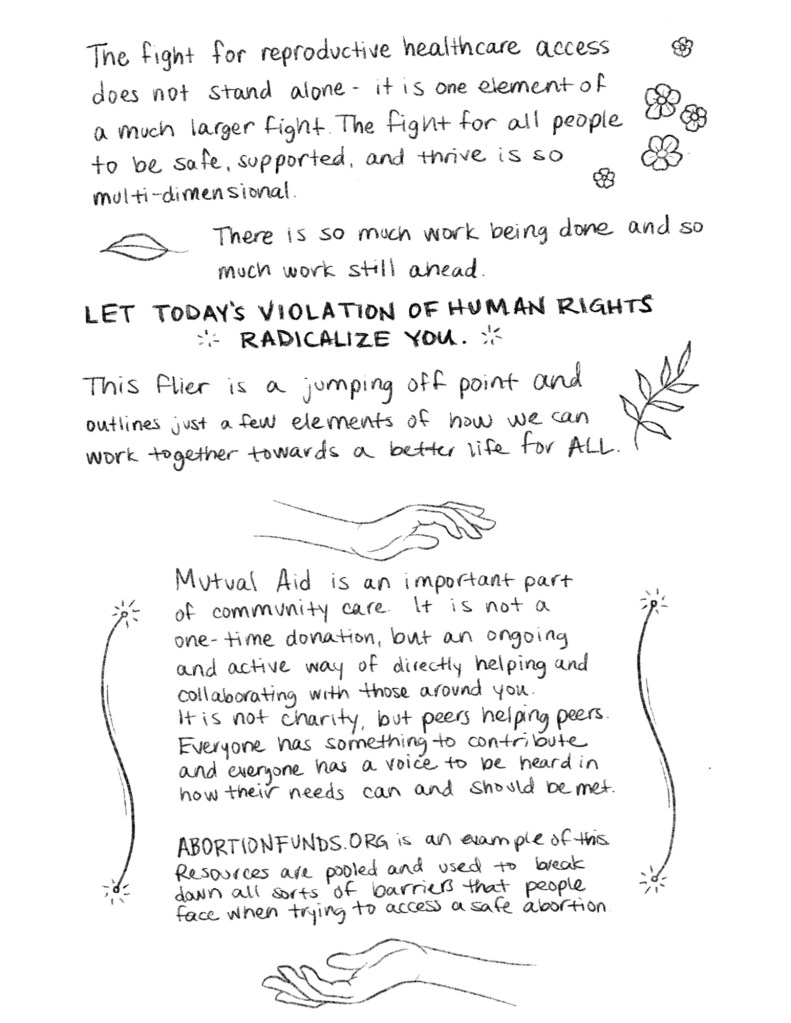 The fight for reproductive healthcare access
does not stand alone - it is one element of
a much larger fight. The fight for all people
to be safe, supported, and thrive is so
multi-dimensional.
There is so much work being done and so
much work still ahead.
LET TODAY'S VIOLATION OF HUMAN RIGHTS
RADICALIZE YOU.
This flier is a jumping off point and
outlines just a few elements of how we can
work together towards a better life for ALL.
Mutual Aid is an important part
of community care. It is not a
one-time donation, but an ongoing
and active way of directly helping and
collaborating with those around you.
It is not charity, but peers helping peers.
Everyone has something to contribute
and everyone has a voice to be heard in
how their needs can and should be met.
ABORTIONFUNDS.ORG is an example of this
Resources are pooled and used to break
down all sorts of barriers that people
face when trying to access a safe abortion.